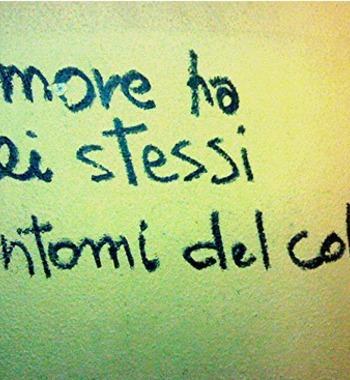 more ha
ei stessi
ntomi del col